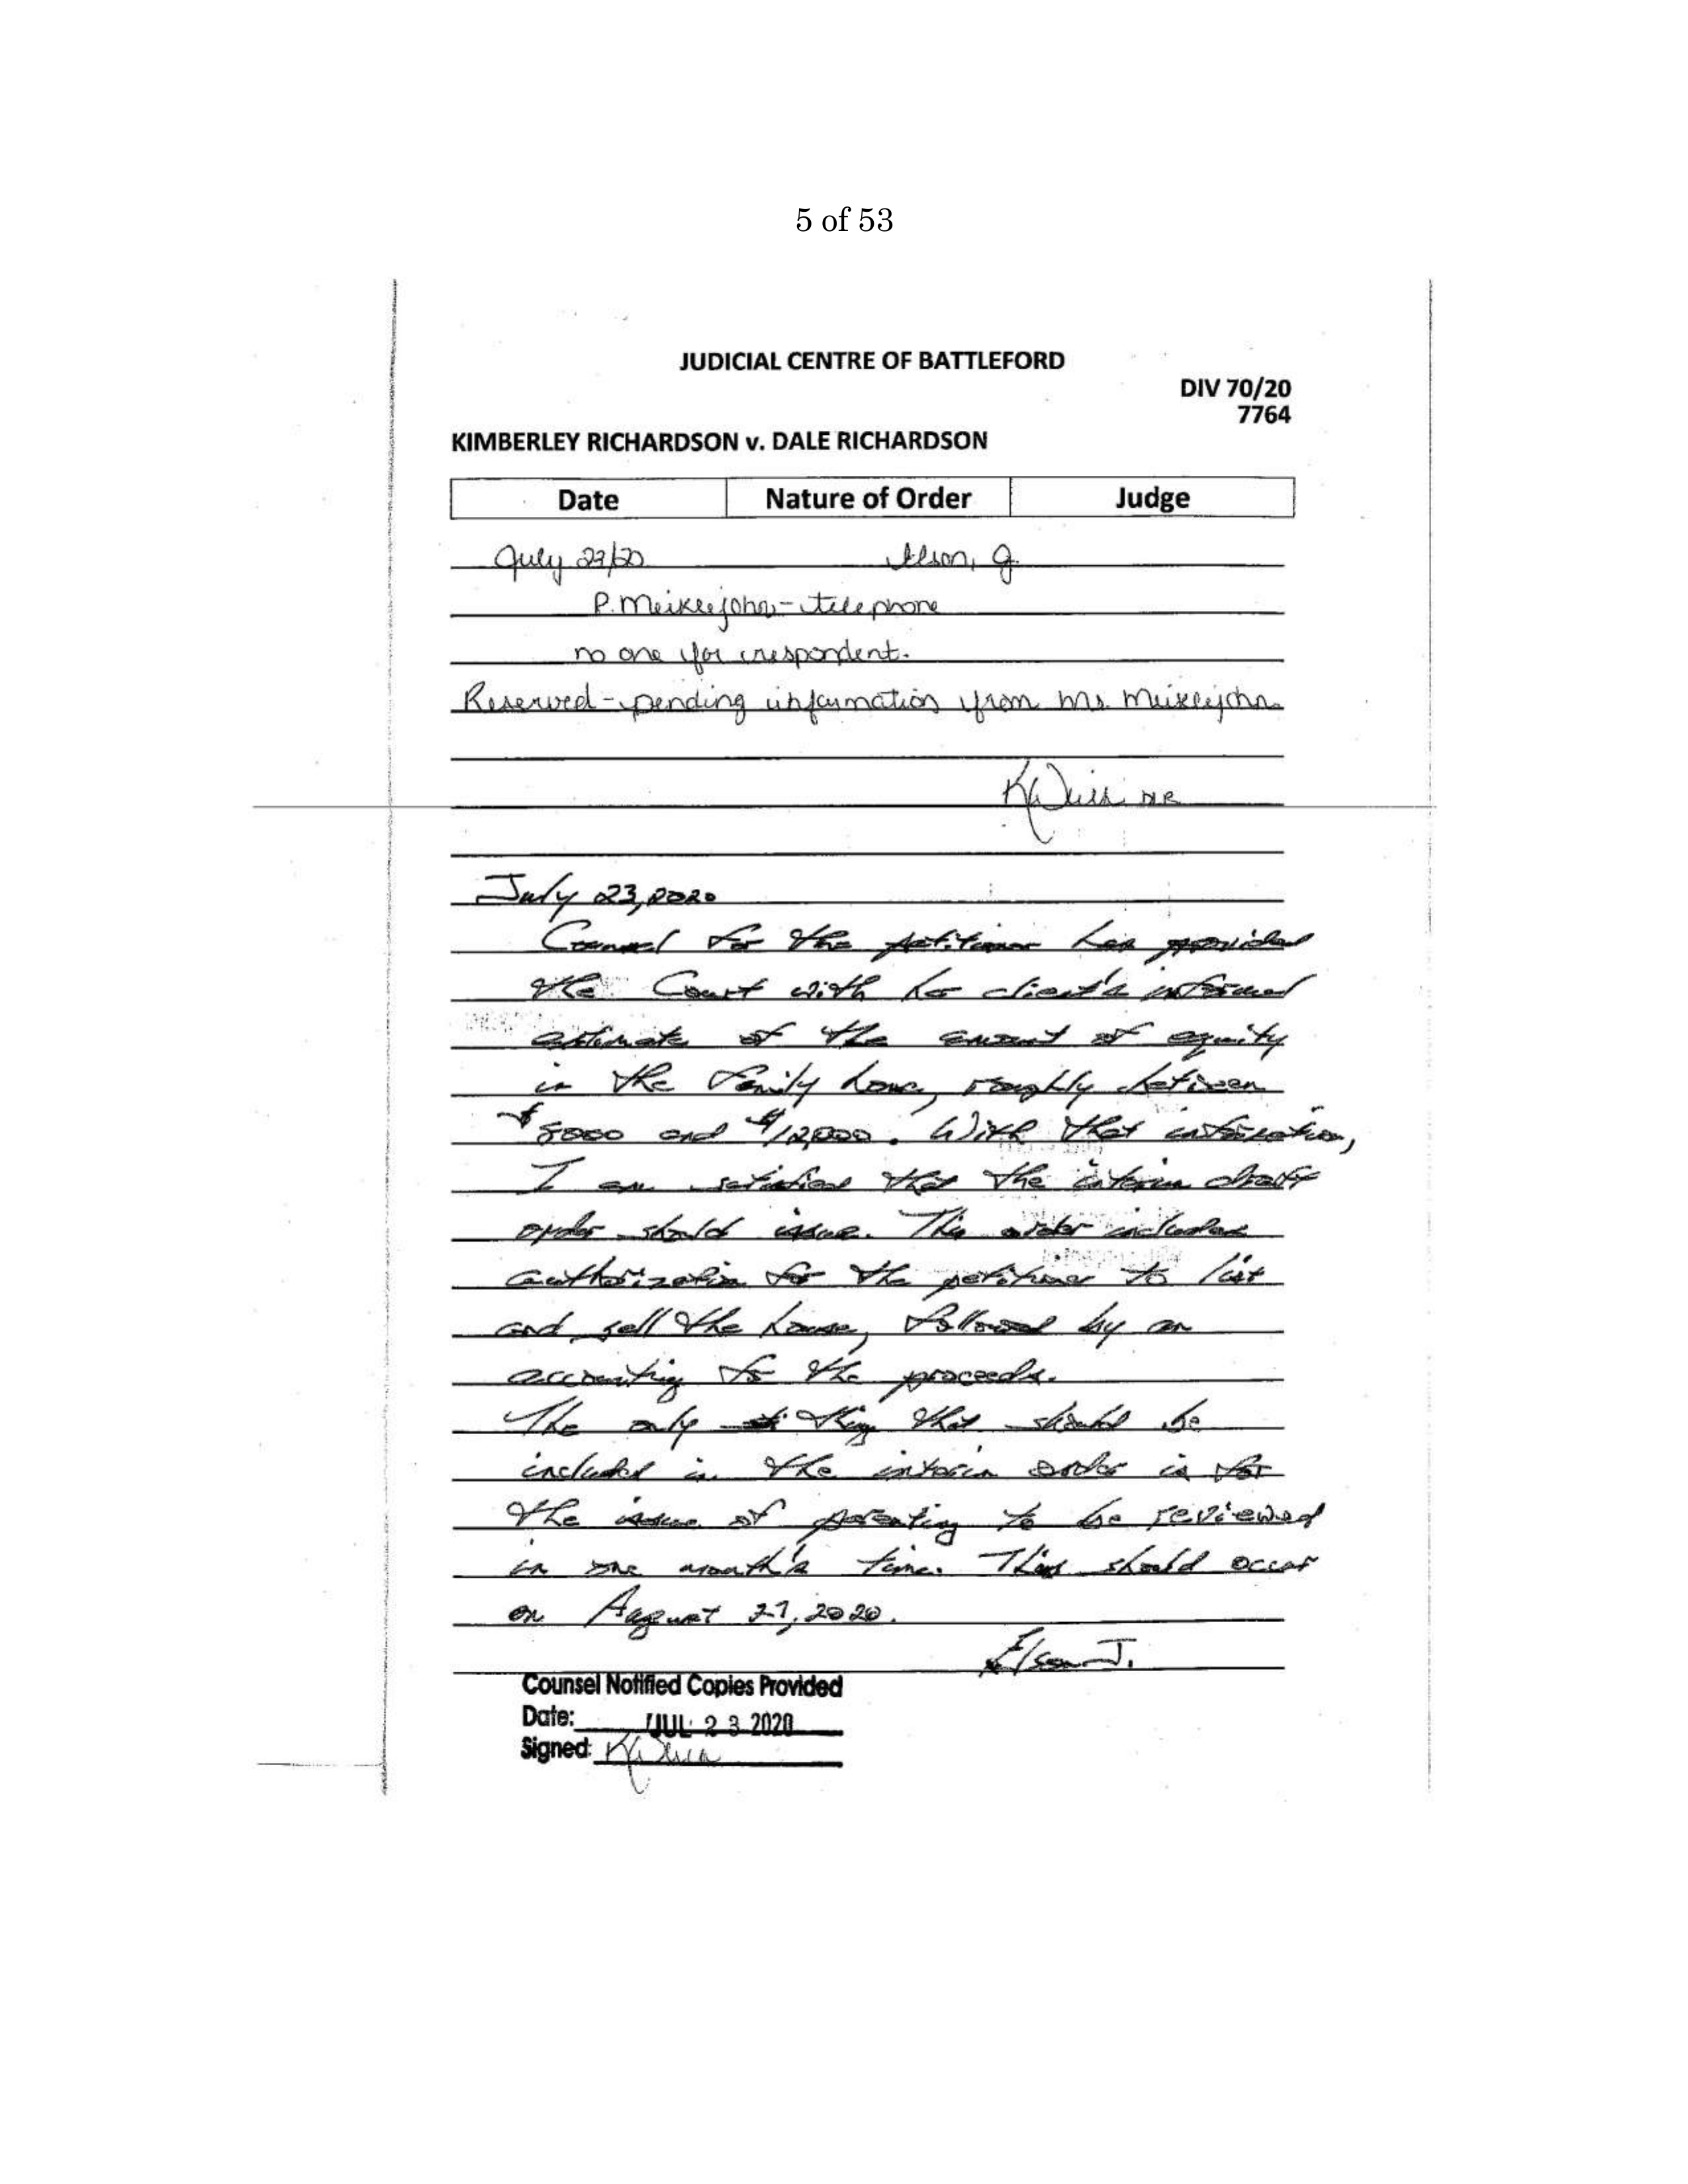 5 of 53
JUDICIAL CENTRE OF BATTLEFORD
DIV 70/20
7764
KIMBERLEY RICHARDSON v. DALE RICHARDSON
Date Nature of Order Judge
July 22/20 Elson, J.
P. Meiklejohn - telephone
no one for respondent.
Reserved - pending information from Ms. Meiklejohn
DLR
July 23, 2020
Counsel for the petitioner has provided
the Court with her client's informed
estimate of the amount of equity
in the family home, roughly between
$8000 and $12,000. With that information,
I am satisfied that the interim draft
order should issue. This order includes
authorization for the petitioner to list
and sell the house, followed by an
accounting for the proceeds.
The only thing that should be
included in the interim order is for
the issue of parenting to be reviewed
in one month's time. This should occur
on August 27, 2020.
Elson J.
Counsel Notified Copies Provided
Date: JUL 23 2020
Signed: